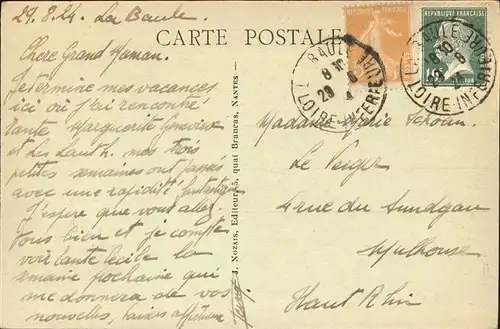 29.8.24. La Baule
Chere Grand Maman.
Je termine mes vacances
ici où j'ai rencontré
tante Marguerite Genevieve
et les Lauth. mes trois
petites semaines ont passé
avec une rapidité fantastique
J'espère que vous allez
tous bien et je compte
voir tante Cécile la
semaine prochaine qui
me donnera de vos
nouvelles, baisers affectueux
CARTE POSTALE
J. Nozais, Editeur, 5, quai Brancas, Nantes
REPUBLIQUE FRANÇAISE
LA BAULE
LOIRE-INFERIEURE
LA BAULE
LOIRE-INFERIEURE
Madame
Le Verger
4 rue du Sundgau
Mulhouse
Haut Rhin